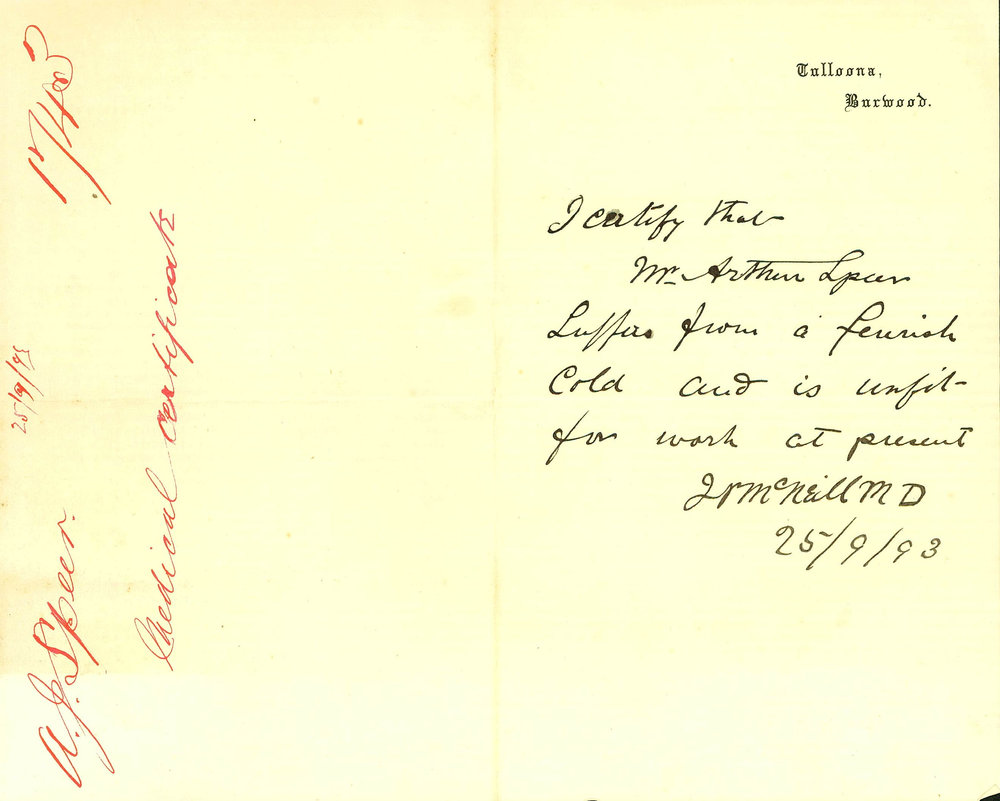 Tulloona,
Burwood.
I certify that
Mr Arthur Speer
Suffers from a feverish
Cold and is unfit
for work at present
McNeill M D
25/9/93
A. J. Speer.
25/9/93
Medical certificate